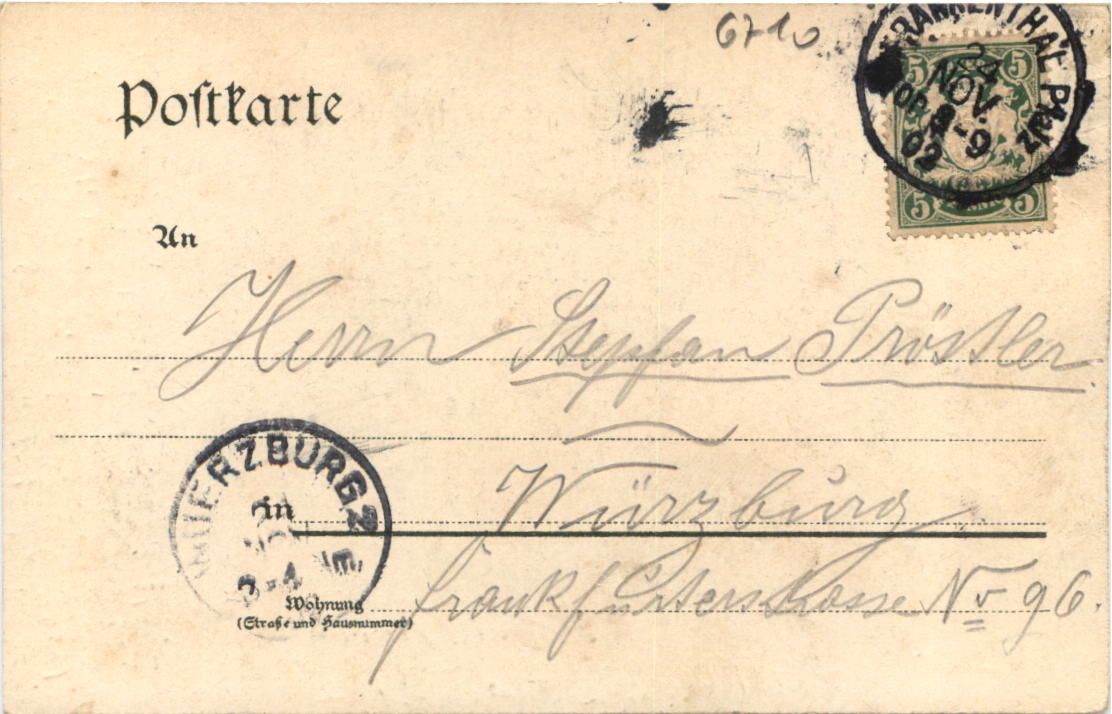 6710
FRANKENTHAL Pfalz
24
NOV.
8-9
02
5 5
5 5
Postkarte
An
Herrn Stephan Pröstler
WUERZBURG 2
in
Würzburg
3-4
Wohnung
(Straße und Hausnummer)
Frankfurterstrasse No 96.